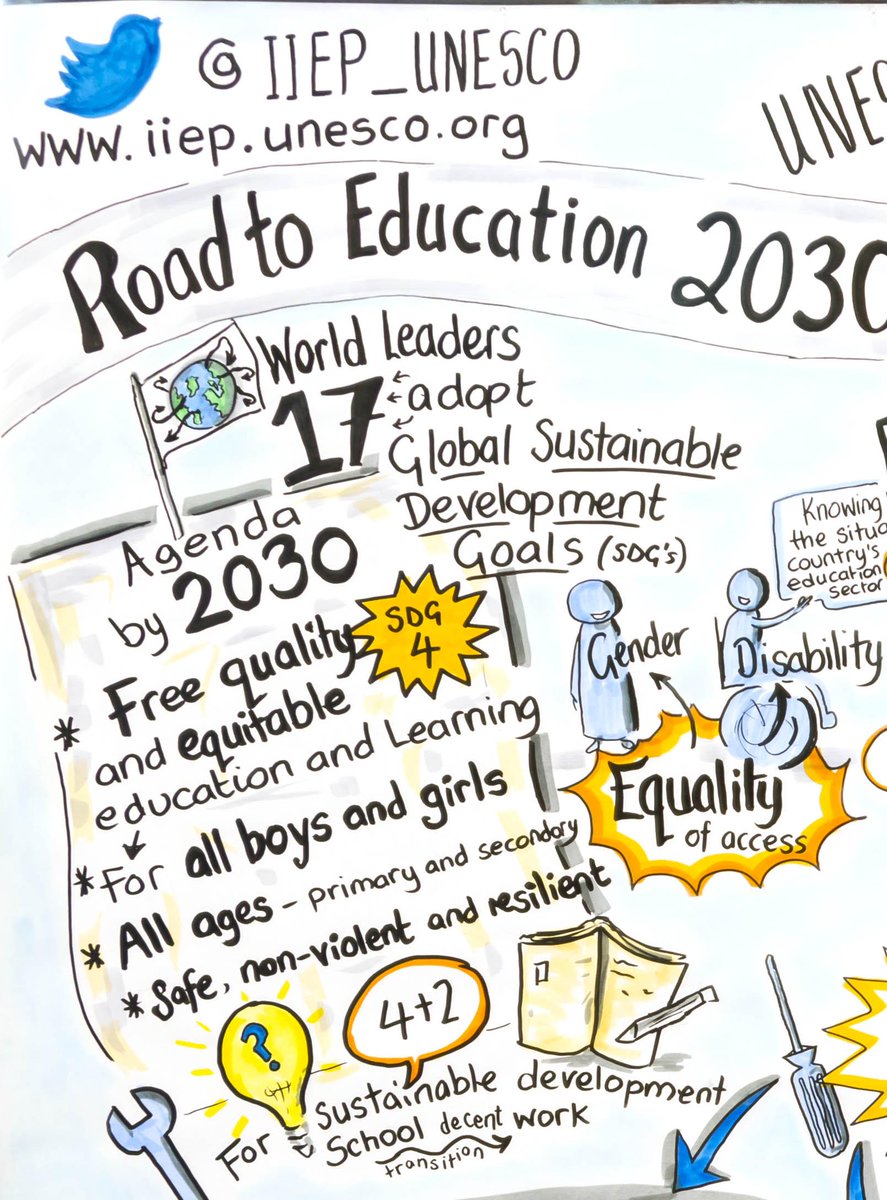 @IIEP_UNESCO
www.iiep.unesco.org
UNES
Road to Education 2030
World Leaders
17 adopt
Global Sustainable
Development
Goals (SDG's)
Agenda
by 2030
SDG
4
* Free quality
and equitable
education and Learning
* For all boys and girls
* All ages - primary and secondary
* Safe, non-violent and resilient
?
4+2
For Sustainable development
School decent work
transition
Knowing
the situa
country's
education
sector
Gender
Disability
Equality
of access